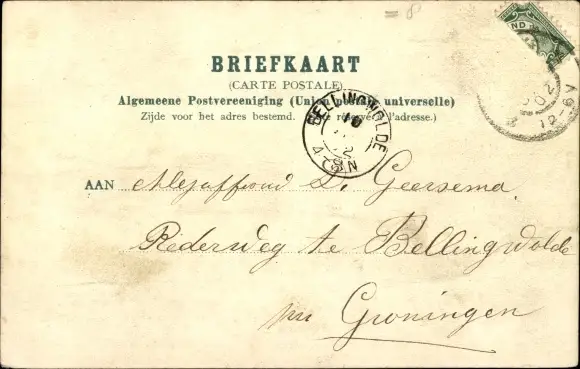 = 8
BRIEFKAART
(CARTE POSTALE)
Algemeene Postvereeniging (Union postale universelle)
Zijde voor het adres bestemd. (Côté réservé à l'adresse.)
BELLINGWOLDE
10
4-5N
ND
12-6V
AAN Mejuffrouw D. Geersema
Rederweg te Bellingwolde
pr Groningen